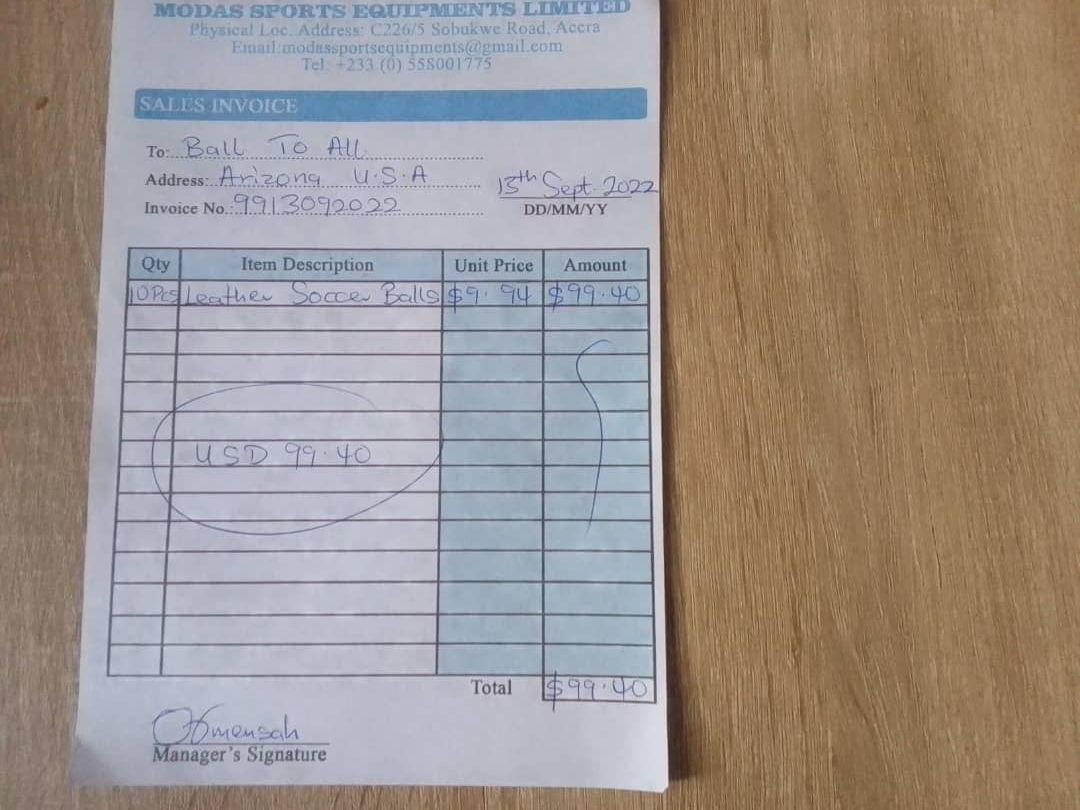 MODAS SPORTS EQUIPMENTS LIMITED
Physical Loc. Address: C226/5 Sobukwe Road, Accra
Email:modassportsequipments@gmail.com
Tel: +233 (0) 558001775
SALES INVOICE
To: Ball To All
Address: Arizona U.S.A
13th Sept. 2022
Invoice No.: 9913092022
DD/MM/YY
Qty Item Description Unit Price Amount
10Pcs Leather Soccer Balls $9.94 $99.40
USD 99.40
Total $99.40
Manager's Signature